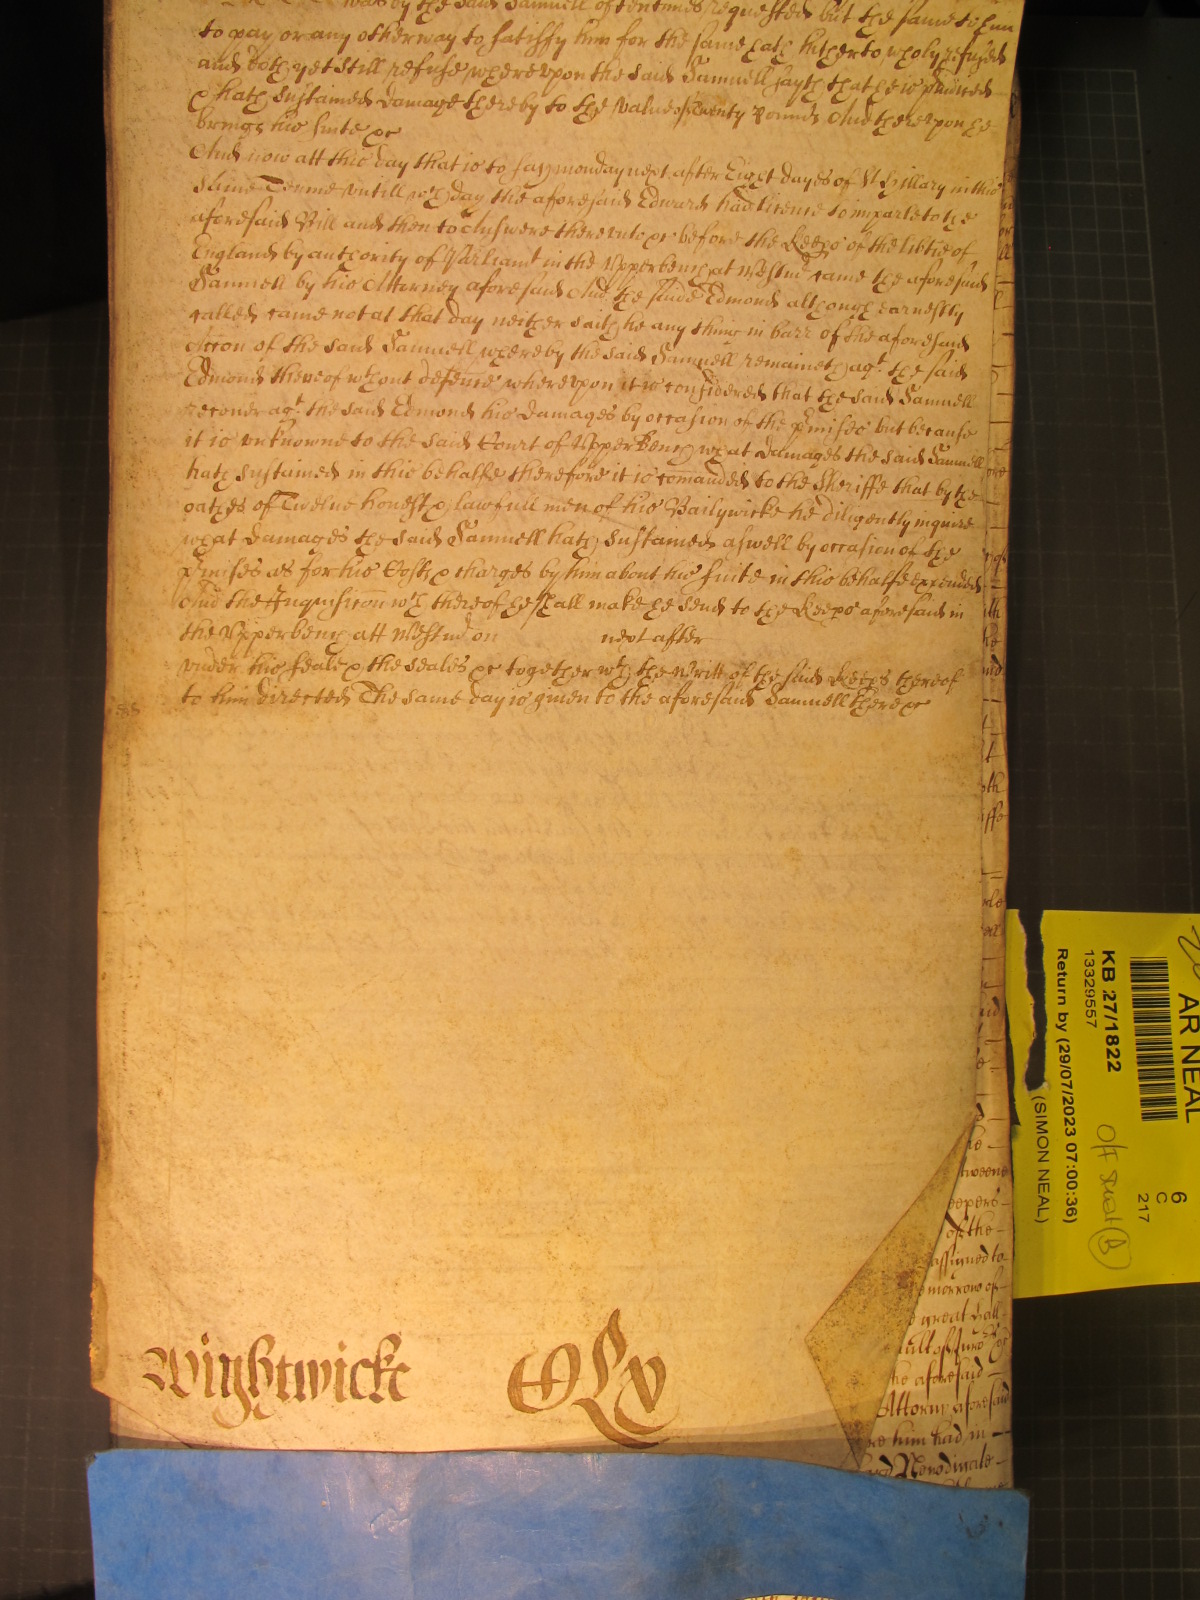 was by the said Samuell oftentimes requested but the same to him
to pay or any other way to satisfy him for the same hath hitherto wholy refused
and doth yet still refuse whereupon the said Samuell sayth that he is p'iuiced
& hath sustained damage thereby to the value of Twenty Pounds And thereupon he
brings his suite &c
And now att this day that is to say monday next after Eight dayes of St Hillary in this
same Terme untill wch day the aforesaid Edward had licence to imparle to the
aforesaid Bill and then to Answere thereunto &c before the Keeps of the lib'tie of
England by authority of Parliamt in the Upperbench at Westmr came the aforesaid
Samuell by his Attorney aforesaid And the saide Edmond although earnestly
called came not at that day neither saith he any thinge in barr of the aforesaid
Accon of the said Samuell whereby the said Samuell remaineth agt the said
Edmond thereof wthout defence whereupon it is considered that the said Samuell
recouer agt the said Edmond his damages by occasion of the p'mises but because
it is unknowne to the said Court of Upper Bench what damages the said Samuell
hath sustained in this behalfe therefore it is comanded to the Sheriffe that by the
oathes of Twelue honest & lawfull men of his Bailywicke he diligently inquire
what damages the said Samuell hath sustained aswell by occasion of the
p'mises as for his Costs & charges by him about his suite in this behalfe expended
And the Inquisicon wch thereof he shall make he send to the Keeps aforesaid in
the Upperbench att Westmr on next after
under his seale & the seales &c together wth the Writt of the said Keeps thereof
to him directed The same day is giuen to the aforesaid Samuell there &c
Wightwicke
tweene
eepers
of the
assigned to
morrow of
great hall
he aforesaid
Attorny aforesaid
re him had in
AR NEAL
KB 27/1822
13329557
Return by (29/07/2023 07:00:36)
(SIMON NEAL)
6
C
217